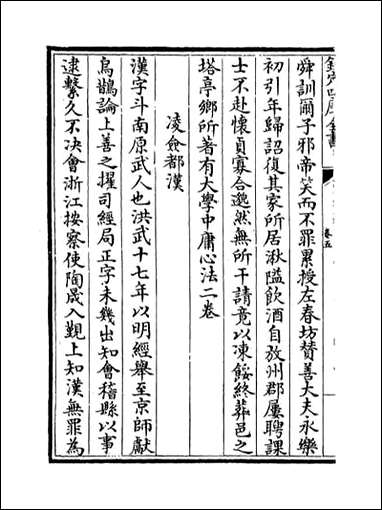 欽定四庫全書
卷五
舜訓爾子邪帝笑而不罪累授左春坊贊善大夫永樂
初引年歸詔復其家所居湫隘飲酒自放州郡屢聘課
士不赴懷貞寡合逸然無所干請竟以凍餒終葬邑之
塔亭鄉所著有大學中庸心法二卷
凌僉都漢
漢字斗南原武人也洪武十七年以明經舉至京師獻
烏鵲論上善之擢司經局正字未幾出知會稽縣以事
逮繫久不決會浙江按察使陶晟入覲上知漢無罪為